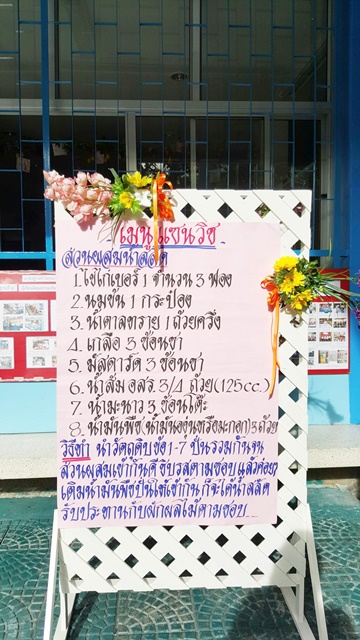 - เมนู แซนวิช -
ส่วนผสมน้ำสลัด
1. ไข่ไก่เบอร์ 1 จำนวน 3 ฟอง
2. นมข้น 1 กระป๋อง
3. น้ำตาลทราย 1 ถ้วยครึ่ง
4. เกลือ 3 ช้อนชา
5. มัสตาร์ด 3 ช้อนชา
6. น้ำส้ม อสร. 3/4 ถ้วย (125 cc.)
7. น้ำมะนาว 3 ช้อนโต๊ะ
8. น้ำมันพืช (น้ำมันองุ่นหรือมะกอก) 3 ถ้วย
วิธีทำ นำวัตถุดิบข้อ 1-7 ปั่นรวมกันจน
ส่วนผสมเข้ากันดี ชิมรสตามชอบ แล้วค่อยๆ
เติมน้ำมันพืชปั่นให้เข้ากันก็จะได้น้ำสลัด
รับประทานกับผักผลไม้ตามชอบ...